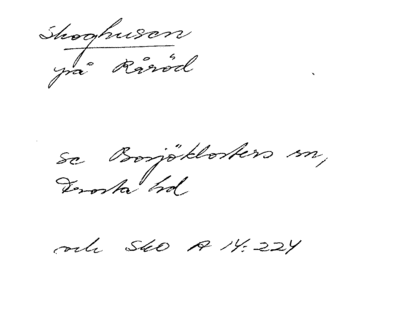 Skoghusen
på Råröd
se Bosjöklosters sn,
Frosta hd
och SkO A 14:224